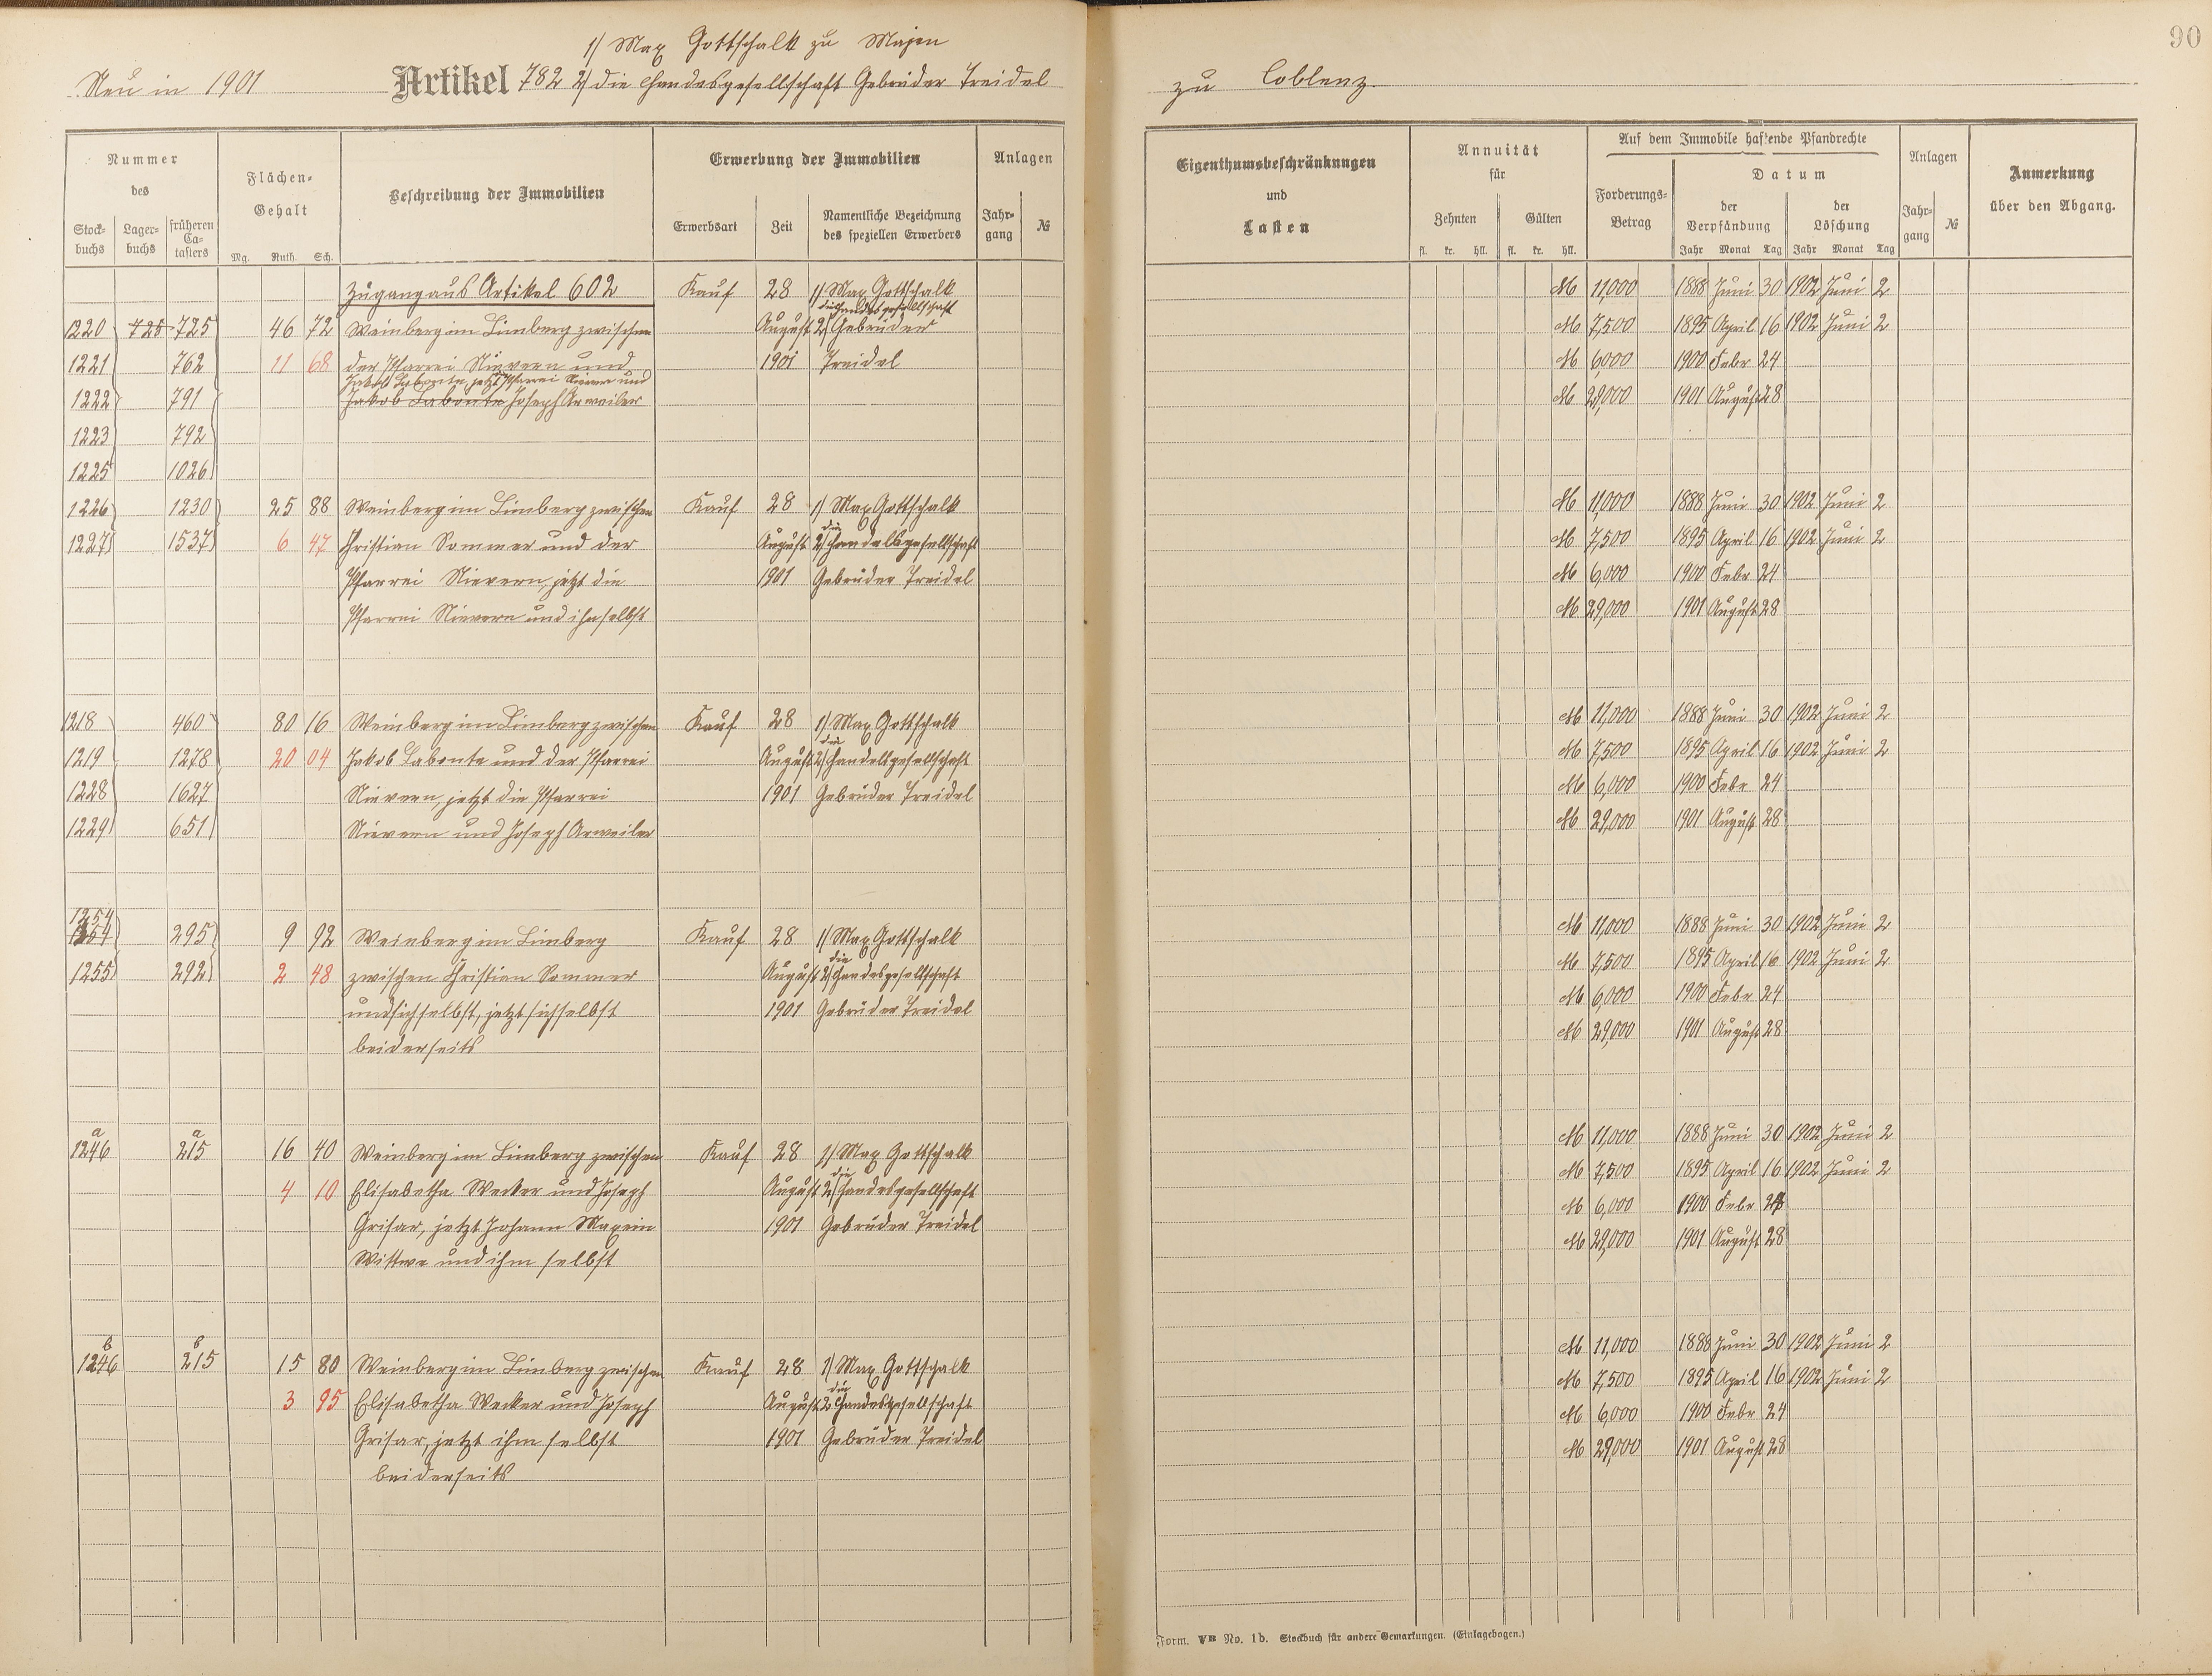 90
1) Max Gottschalk zu Majen
Neu in 1901 Artikel 782 2) die Handesgesellschaft Gebrüder Treidel zu Coblenz.
Nummer des
Stockbuchs
Lagerbuchs
früheren Catasters
Flächen-Gehalt
Mg. Ruth. Sch.
Beschreibung der Immobilien
Erwerbung der Immobilien
Erwerbsart
Zeit
Namentliche Bezeichnung des speziellen Erwerbers
Anlagen
Jahrgang
№
Eigenthumsbeschränkungen und Lasten
Annuität für
Zehnten
Gülten
fl. kr. hll. fl. kr. hll.
Auf dem Immobile haftende Pfandrechte
Forderungs-Betrag
Datum
der Verpfändung
der Löschung
Jahr Monat Tag Jahr Monat Tag
Anlagen
Jahrgang
№
Anmerkung über den Abgang.
Zugang aus Artikel 602 Kauf 28 1) Max Gottschalk M 11,000 1888 Juni 30 1902 Juni 2
die Handesgesellschaft
1220 725 725 46 72 Weinberg im Limberg zwischen August 2) Gebrüder M 7,500 1895 April 16 1902 Juni 2
1221 762 11 68 der Pfarrei Nievern und 1901 Treidel M 6,000 1900 Febr 24
Jakob Labonte, jetzt Pfarrei Nievern und
1222 791 Jakob Labonte Joseph Arweiler M 29,000 1901 August 28
1223 792
1225 1026
1226 1230 25 88 Weinberg im Limberg zwischen Kauf 28 1) Max Gottschalk M 11,000 1888 Juni 30 1902 Juni 2
die
1227 1537 6 47 Christian Sommer und der August 2) Handelsgesellschaft M 7,500 1895 April 16 1902 Juni 2
Pfarrei Nievern, jetzt die 1901 Gebrüder Treidel M 6,000 1900 Febr 24
Pfarrei Nievern und ihmselbst M 29,000 1901 August 28
1218 460 80 16 Weinberg im Limberg zwischen Kauf 28 1) Max Gottschalk M 11,000 1888 Juni 30 1902 Juni 2
die
1219 1278 20 04 Jakob Labonte und der Pfarrei August 2) Handelsgesellschaft M 7,500 1895 April 16 1902 Juni 2
1228 1627 Nievern, jetzt die Pfarrei 1901 Gebrüder Treidel M 6,000 1900 Febr 24
1229 651 Nievern und Joseph Arweiler M 29,000 1901 August 28
1254 295 9 92 Weinberg im Limberg Kauf 28 1) Max Gottschalk M 11,000 1888 Juni 30 1902 Juni 2
die
1255 292 2 48 zwischen Christian Sommer August 2) Handesgesellschaft M 7,500 1895 April 16 1902 Juni 2
und sich selbst, jetzt sich selbst 1901 Gebrüder Treidel M 6,000 1900 Febr 24
beiderseits M 29,000 1901 August 28
a a
1246 215 16 40 Weinberg im Limberg zwischen Kauf 28 1) Max Gottschalk M 11,000 1888 Juni 30 1902 Juni 2
die
4 10 Elisabetha Wecker und Joseph August 2) Handesgesellschaft M 7,500 1895 April 16 1902 Juni 2
Grisar, jetzt Johann Maxein 1901 Gebrüder Treidel M 6,000 1900 Febr 24
Wittwe und ihm selbst M 29,000 1901 August 28
b b
1246 215 15 80 Weinberg im Limberg zwischen Kauf 28 1) Max Gottschalk M 11,000 1888 Juni 30 1902 Juni 2
die
3 95 Elisabetha Wecker und Joseph August 2 Handesgesellschaft M 7,500 1895 April 16 1902 Juni 2
Grisar, jetzt ihm selbst 1901 Gebrüder Treidel M 6,000 1900 Febr 24
beiderseits M 29,000 1901 August 28
Form. VB No. 1b. Stockbuch für andere Gemarkungen. (Einlagebogen.)